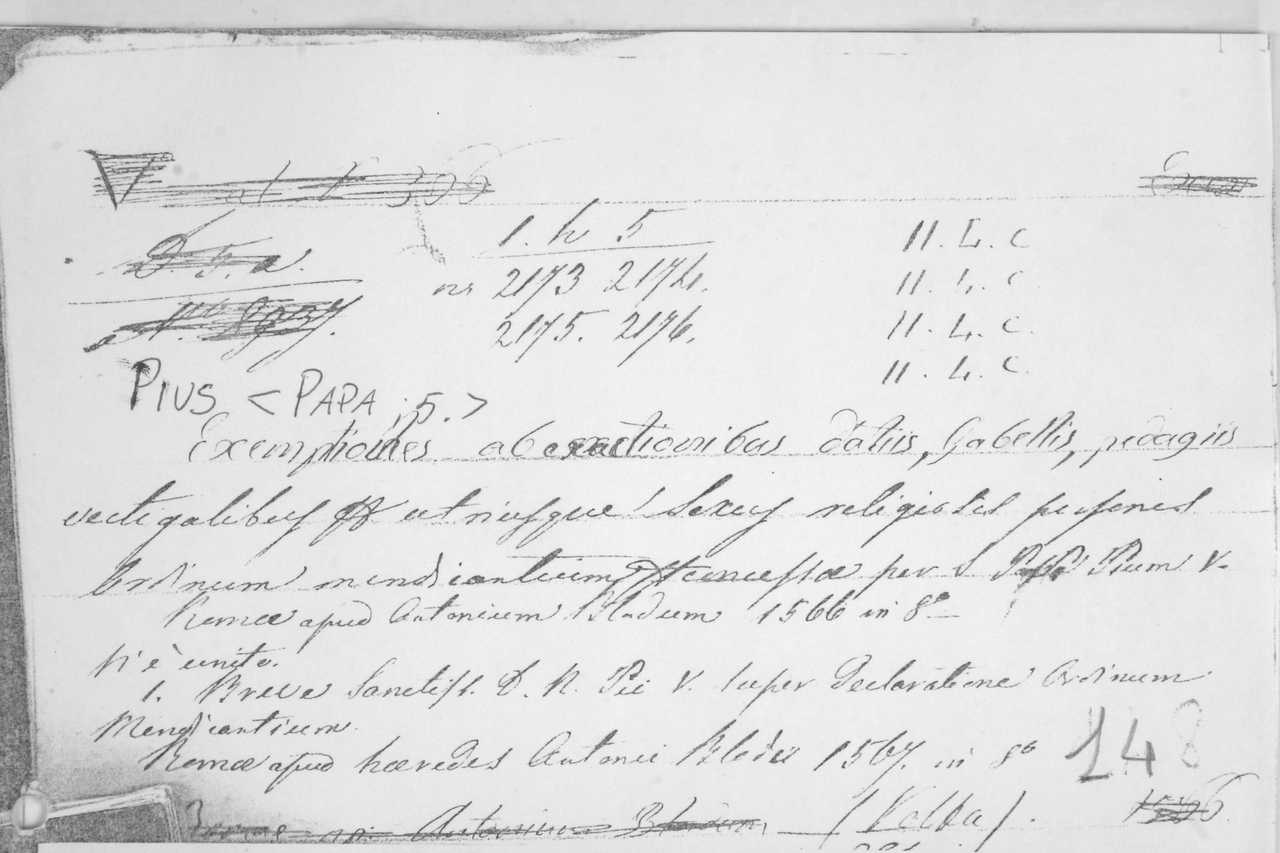 1. h 5 11. L. c
nr 2173 2174. 11. L. c
2175. 2176. 11. L. c.
11. L. c.
PIUS < PAPA ; 5. >
Exemptiones ab exactionibus datiis, Gabellis, pedagiis
vectigalibus utriusque Sexus religiosis personis
Ordinum mendicantium concessæ per S Pium V.
Romæ apud Antonium Bladum 1566 in 8°
N'è unito.
1. Breve Sanctiss. D. N. Pii V. super Declaratione Ordinum
Mendicantium.
Romæ apud hæredes Antonii Bladii 1567. in 8°
148
(Volba).